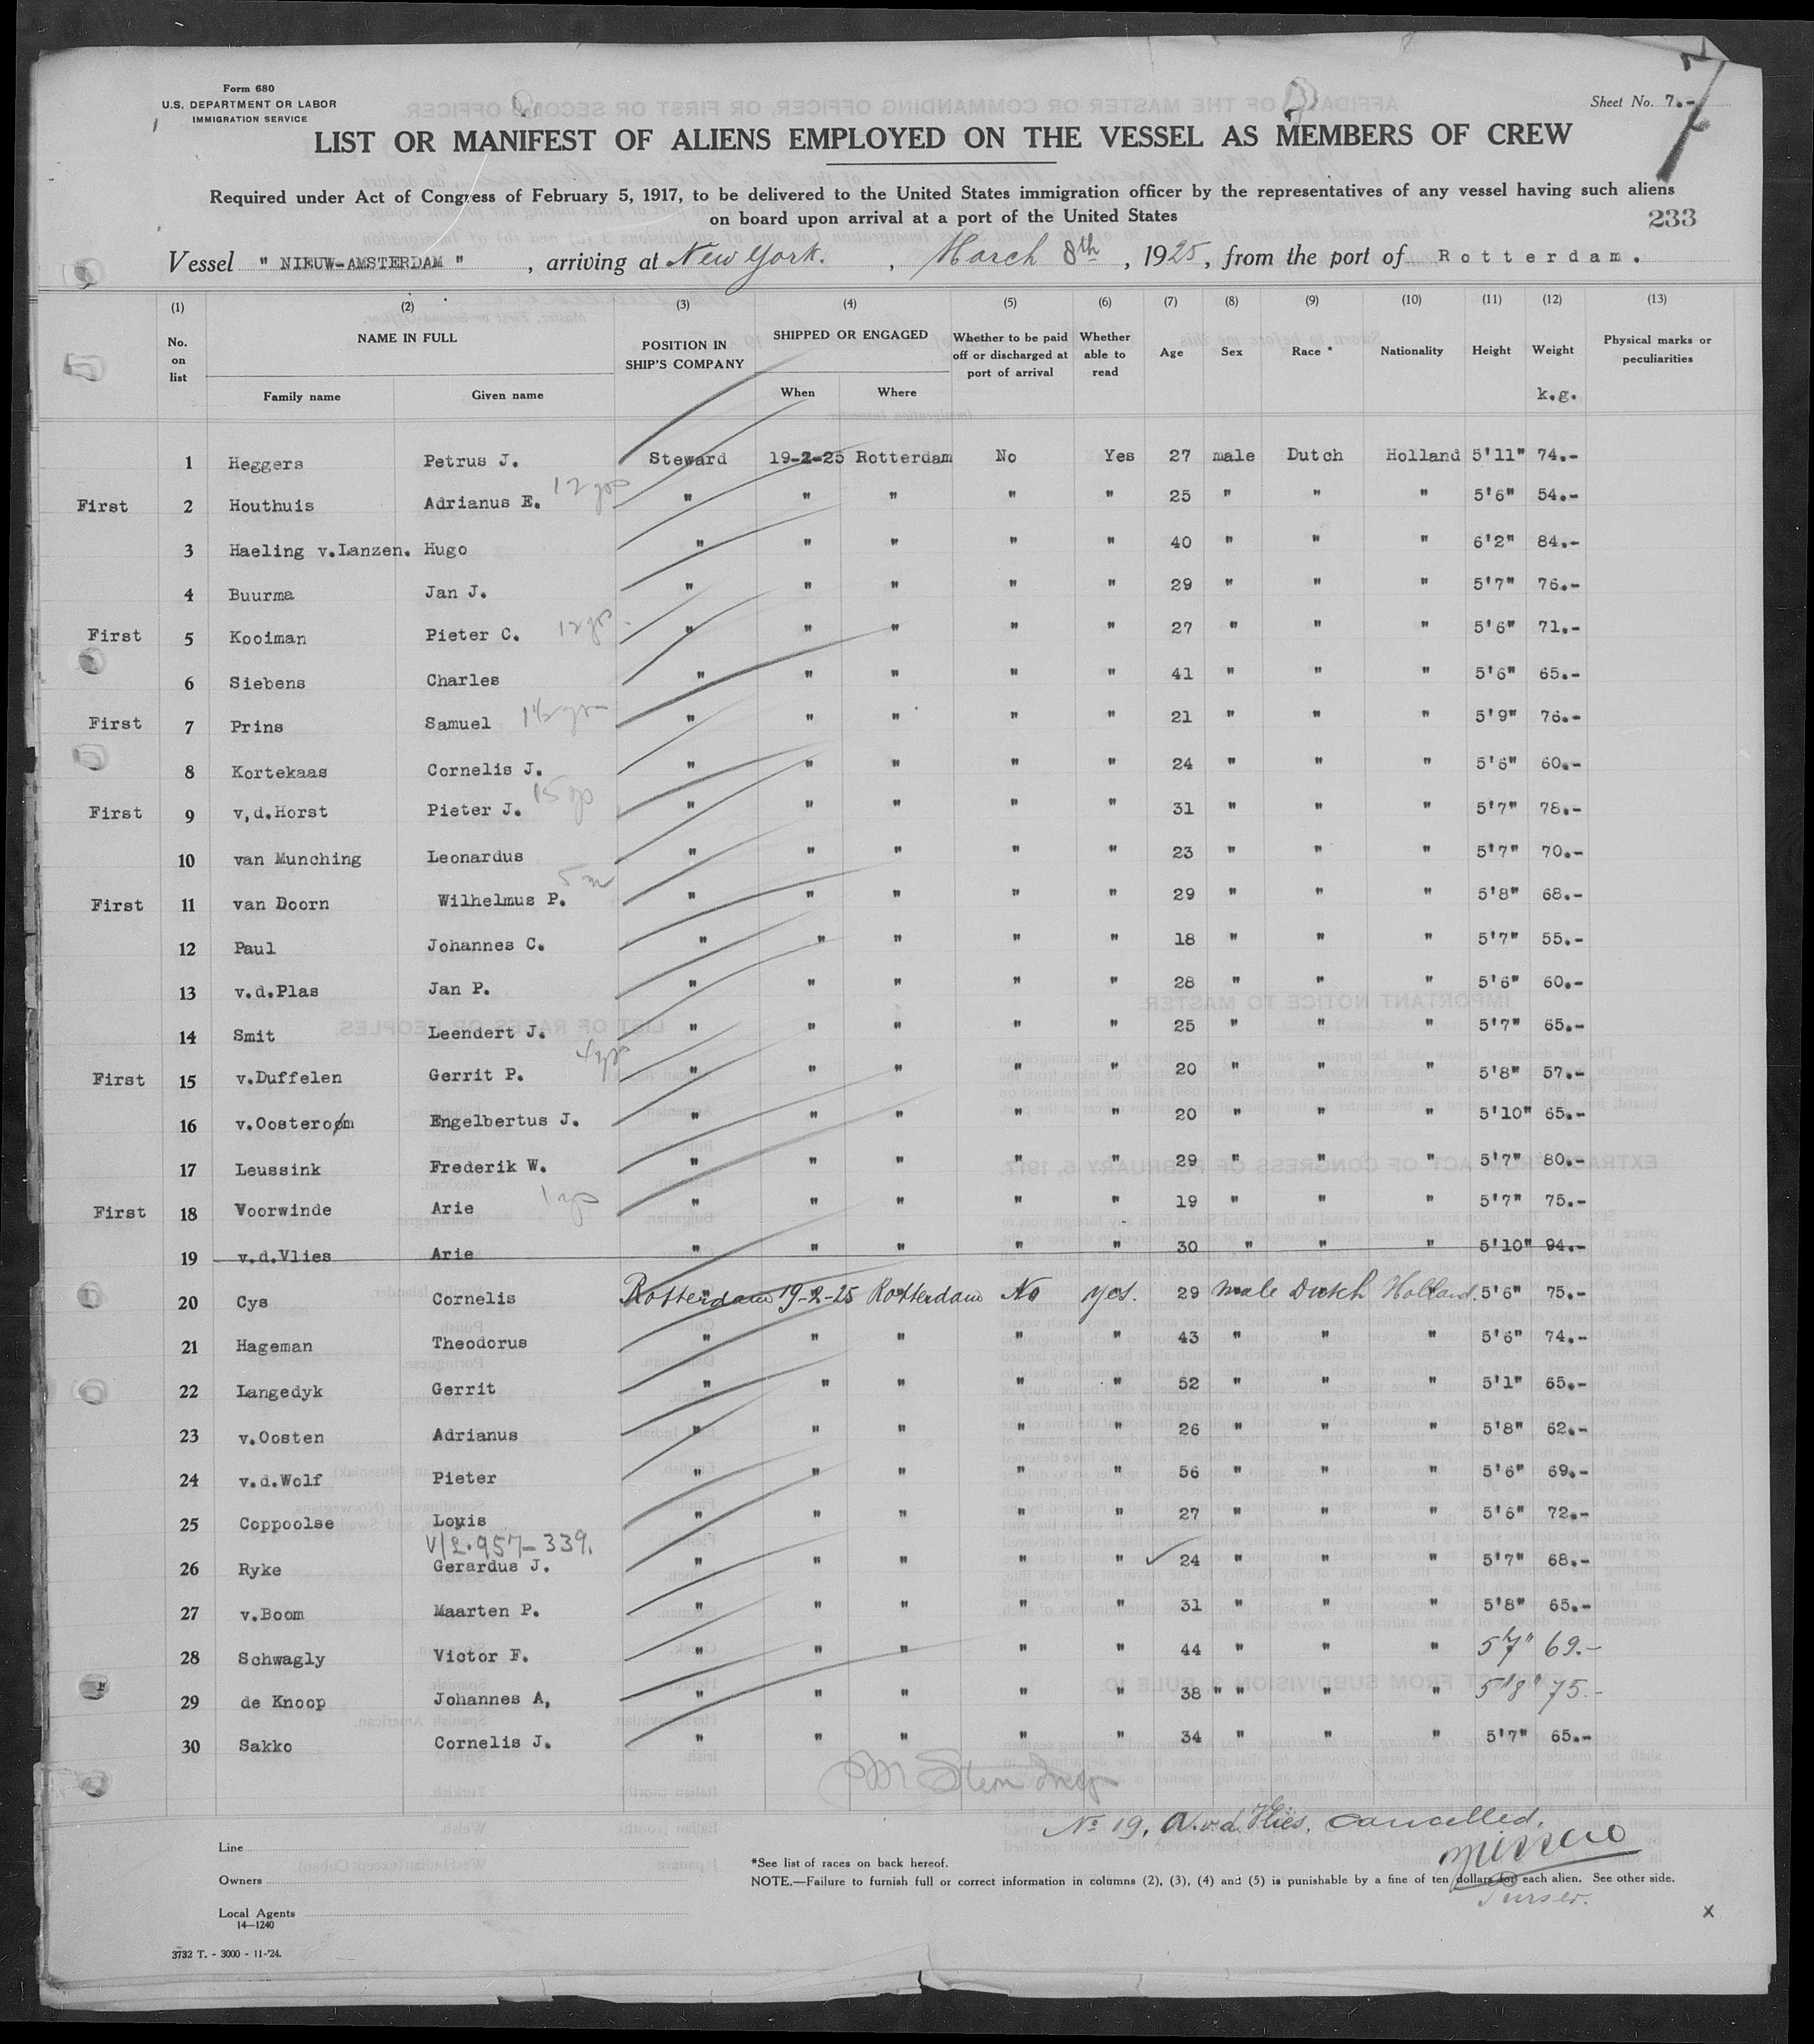 Form 680
U.S. DEPARTMENT OR LABOR
IMMIGRATION SERVICE
Sheet No. 7.-
7
LIST OR MANIFEST OF ALIENS EMPLOYED ON THE VESSEL AS MEMBERS OF CREW
Required under Act of Congress of February 5, 1917, to be delivered to the United States immigration officer by the representatives of any vessel having such aliens
on board upon arrival at a port of the United States
233
Vessel " NIEUW-AMSTERDAM ", arriving at New York. , March 8th, 1925, from the port of Rotterdam.
(1) (2) (3) (4) (5) (6) (7) (8) (9) (10) (11) (12) (13)
No. on list NAME IN FULL Family name Given name POSITION IN SHIP'S COMPANY SHIPPED OR ENGAGED When Where Whether to be paid off or discharged at port of arrival Whether able to read Age Sex Race * Nationality Height Weight k.g. Physical marks or peculiarities
1 Heggers Petrus J. Steward 19-2-25 Rotterdam No Yes 27 male Dutch Holland 5'11" 74.-
First 2 Houthuis Adrianus E. 12 yrs " " " " " 25 " " " 5'6" 54.-
3 Haeling v.Lanzen. Hugo " " " " " 40 " " " 6'2" 84.-
4 Buurma Jan J. " " " " " 29 " " " 5'7" 76.-
First 5 Kooiman Pieter C. 12 yrs " " " " " 27 " " " 5'6" 71.-
6 Siebens Charles " " " " " 41 " " " 5'6" 65.-
First 7 Prins Samuel " " " " " 21 " " " 5'9" 76.-
8 Kortekaas Cornelis J. " " " " " 24 " " " 5'6" 60.-
First 9 v,d.Horst Pieter J. " " " " " 31 " " " 5'7" 78.-
10 van Munching Leonardus " " " " " 23 " " " 5'7" 70.-
First 11 van Doorn Wilhelmus P. " " " " " 29 " " " 5'8" 68.-
12 Paul Johannes C. " " " " " 18 " " " 5'7" 55.-
13 v.d.Plas Jan P. " " " " " 28 " " " 5'6" 60.-
14 Smit Leendert J. " " " " " 25 " " " 5'7" 65.-
First 15 v.Duffelen Gerrit P. " " " " " 20 " " " 5'8" 57.-
16 v.Oosterom Engelbertus J. " " " " " 20 " " " 5'10" 65.-
17 Leussink Frederik W. " " " " " 29 " " " 5'7" 80.-
First 18 Voorwinde Arie " " " " " 19 " " " 5'7" 75.-
19 v.d.Vlies Arie " " " " " 30 " " " 5'10" 94.-
20 Cys Cornelis Rotterdam 19-2-25 Rotterdam No yes. 29 male Dutch Holland. 5'6" 75.-
21 Hageman Theodorus " " " " " 43 " " " 5'6" 74.-
22 Langedyk Gerrit " " " " " 52 " " " 5'1" 65.-
23 v.Oosten Adrianus " " " " " 26 " " " 5'8" 62.-
24 v.d.Wolf Pieter " " " " " 56 " " " 5'6" 69.-
25 Coppoolse Louis " " " " " 27 " " " 5'6" 72.-
V/2.957-339.
26 Ryke Gerardus J. " " " " " ✓ 24 " " " 5'7" 68.-
27 v.Boom Maarten P. " " " " " 31 " " " 5'8" 65.-
28 Schwagly Victor F. " " " " " 44 " " " 5'7" 69.-
29 de Knoop Johannes A, " " " " " 38 " " " " 5'8" 75.-
30 Sakko Cornelis J. " " " " " 34 " " " 5'7" 65.-
No 19, A.v.d. Vlies, cancelled.
Purser.
Line
Owners
Local Agents
14—1240
*See list of races on back hereof.
NOTE.—Failure to furnish full or correct information in columns (2), (3), (4) and (5) is punishable by a fine of ten dollars for each alien. See other side.
x
3732 T. - 3000 - 11-'24.